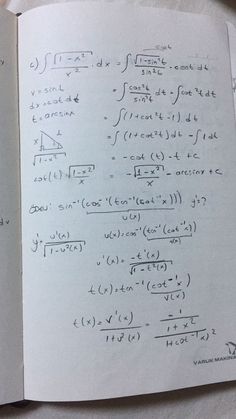 cost
c) ∫ √(1-x²)/x² · dx = ∫ √(1-sin²t)/sin²t · cost dt
x = sint
= ∫ cos²t/sin²t dt = ∫ cot²t dt
dx = cost dt
t = arcsinx
= ∫ (1+cot²t-1) dt
= ∫ (1+cot²t) dt - ∫ 1 dt
x 1
√(1-x²)
= -cot(t) - t + c
cot(t) = √(1-x²)/x
= -√(1-x²)/x - arcsinx + c
Ödev: sin⁻¹(cos⁻¹(tan⁻¹(cot⁻¹x))) y'=?
u(x)
y' = u'(x)/√(1-u²(x))
u(x) = cos⁻¹(tan⁻¹(cot⁻¹x))
t(x)
u'(x) = -t'(x)/√(1-t²(x))
t(x) = tan⁻¹(cot⁻¹x)
v(x)
t(x) = v'(x)/(1+v²(x)) = (-1/(1+x²))/(1+(cot⁻¹x)²)
VARUK MAKİNA